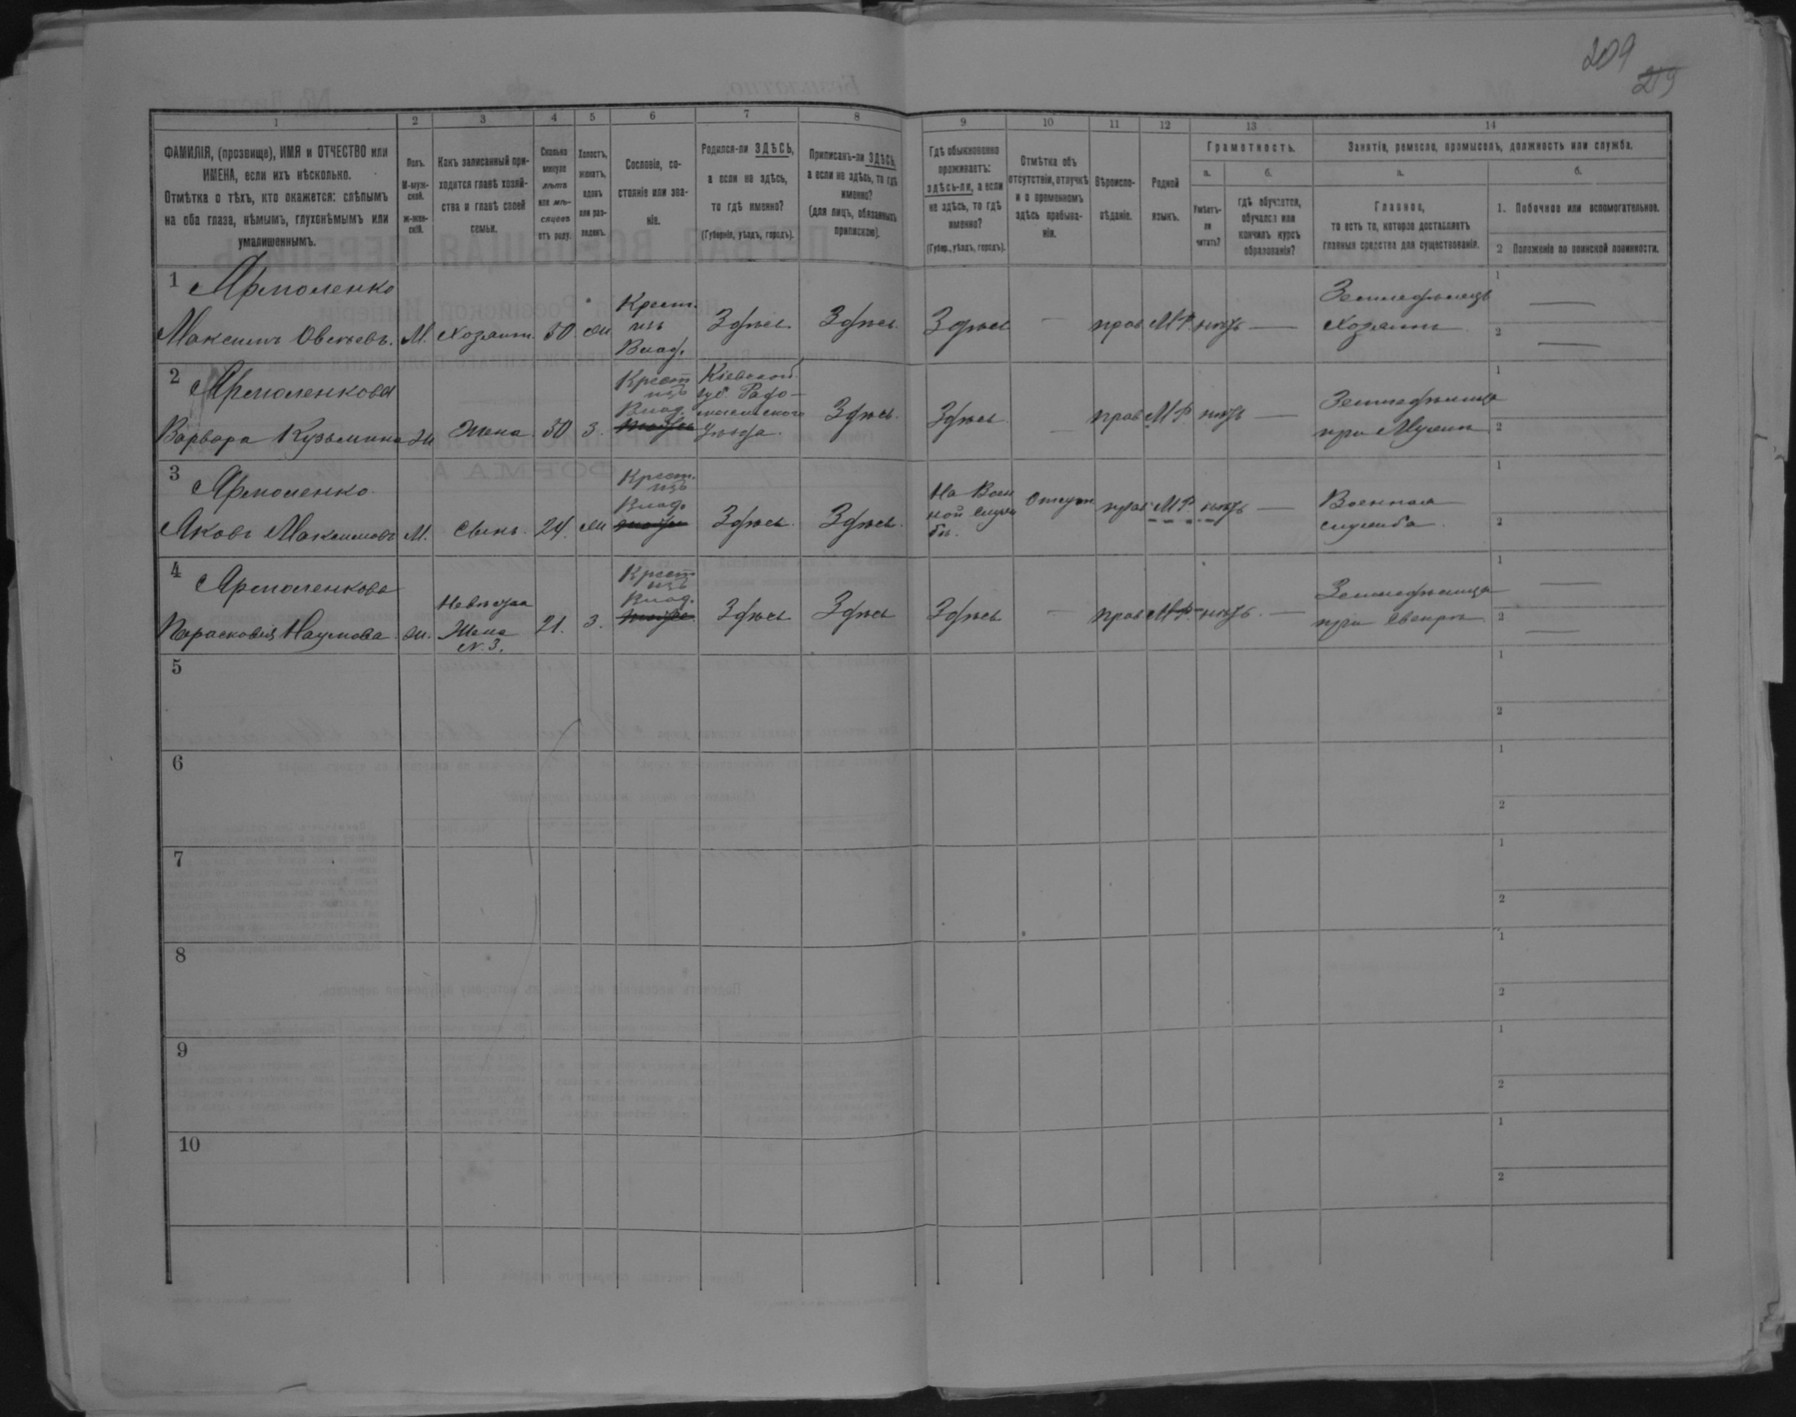 209
219
1
2
3
4
5
6
7
8
9
10
11
12
13
14
ФАМИЛІЯ, (прозвище), ИМЯ и ОТЧЕСТВО или
ИМЕНА, если ихъ нѣсколько.
Отмѣтка о тѣхъ, кто окажется: слѣпымъ
на оба глаза, нѣмымъ, глухонѣмымъ или
умалишеннымъ.
Полъ.
М-муж-
ской.
ж-жен-
скій.
Какъ записанный при-
ходится главѣ хозяй-
ства и главѣ своей
семьи.
Сколько
минуло
лѣтъ
или мѣ-
сяцевъ
отъ роду.
Холостъ,
женатъ,
вдовъ
или раз-
веденъ.
Сословіе, со-
стояніе или зва-
ніе.
Родился-ли ЗДѢСЬ,
а если не здѣсь,
то гдѣ именно?
(Губернія, уѣздъ, городъ).
Приписанъ-ли ЗДѢСЬ,
а если не здѣсь, то гдѣ
именно?
(для лицъ, обязанныхъ
припискою).
Гдѣ обыкновенно
проживаетъ:
здѣсь-ли, а если
не здѣсь, то гдѣ
именно?
(Губер., уѣздъ, городъ).
Отмѣтка объ
отсутствіи, отлучкѣ
и о временномъ
здѣсь пребыва-
ніи.
Вѣроиспо-
вѣданіе.
Родной
языкъ.
Грамотность.
а.
Умѣетъ-
ли
читать?
б.
гдѣ обучается,
обучался или
кончилъ курсъ
образованія?
Занятія, ремесло, промыселъ, должность или служба.
а.
Главное,
то есть то, которое доставляетъ
главныя средства для существованія.
б.
1. Побочное или вспомогательное.
2 Положеніе по воинской повинности.
1 Ярмоленко
Максимъ Овсѣевъ. М. Хозяинъ. 50 жи Крест. изъ Влад. Здѣсь Здѣсь Здѣсь — прав МР нѣтъ — Земледѣлецъ Хозяинъ
1 —
2 —
2 Ярмоленкова
Варвара Кузьмина жи Жена 50 З. Крест изъ Влад. Кіевской губ. Радо-мысльского Уѣзда. Здѣсь. Здѣсь — прав МР нѣтъ — Земледѣлица при Мужѣ
1
2
3 Ярмоленко
Яковъ Максимовъ М. Сынъ. 24. жи Крест. изъ Влад. Здѣсь. Здѣсь. На Воен ной Служ бѣ. Отсут прав МР нѣтъ — Военная служба
1
2
4 Ярмоленкова
Парасковія Наумова жи. Невѣстка Жена N. 3. 21. З. Крест изъ Влад. Здѣсь Здѣсь Здѣсь — прав МР нѣтъ — Земледѣлица при Свекрѣ
1 —
2 —
5
1
2
6
1
2
7
1
2
8
1
2
9
1
2
10
1
2